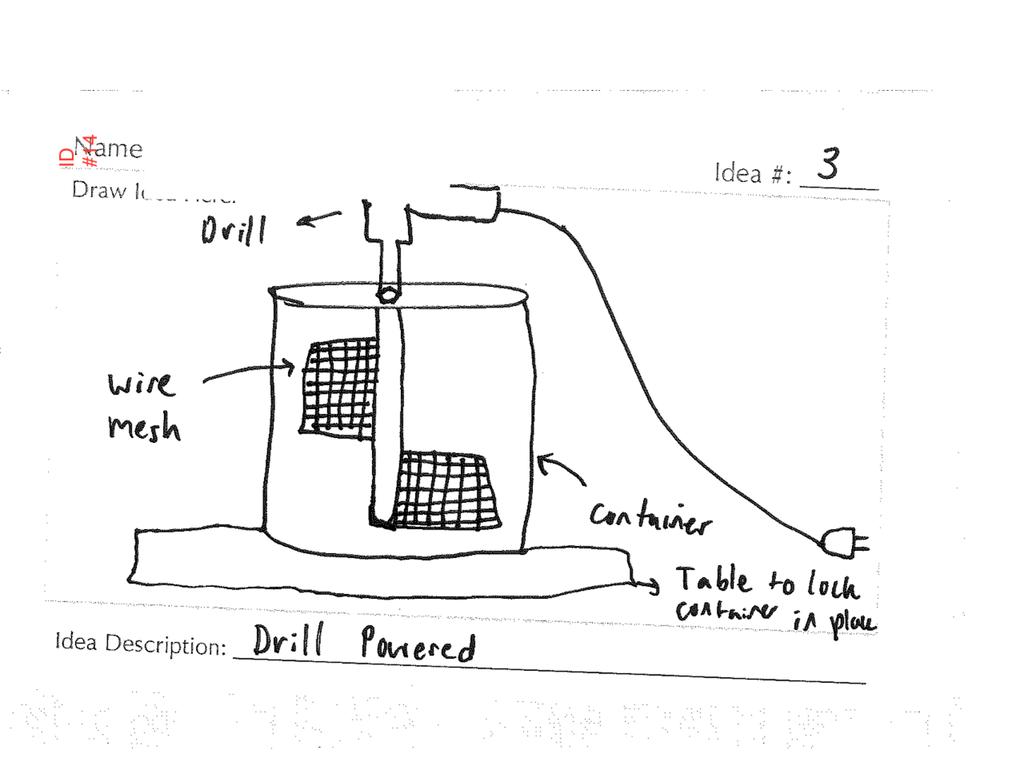 ID
#14
Name
Idea #: 3
Draw Idea Here:
Drill
wire
mesh
container
Table to lock
container in place
Idea Description: Drill Powered